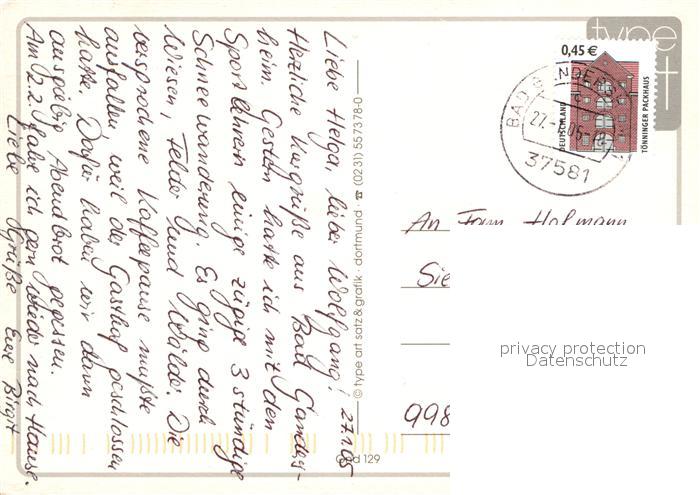 27.1.05
Liebe Helga, lieber Wolfgang!
Herzliche Kurgrüße aus Bad Ganders-
heim. Gestern hatte ich mit den
Sportlehrern einige zügige 3 stündige
Schneewanderung. Es ging durch
Wiesen, Felder und Wälder. Die
versprochene Kaffeepause mußte
ausfallen weil der Gasthof geschlossen
hatte. Dafür haben wir dann
ausgiebig Abendbrot gegessen.
Am 2.2. fahre ich gern wieder nach Hause.
Liebe Grüße Eure Birgit
© type art satz & grafik · dortmund · ☎ (0231) 557378-0
129
type
0,45 €
DEUTSCHLAND
TÖNNINGER PACKHAUS
BAD GANDERSHEIM
37581
An Fam. Hofmann
Sie
998
privacy protection
Datenschutz